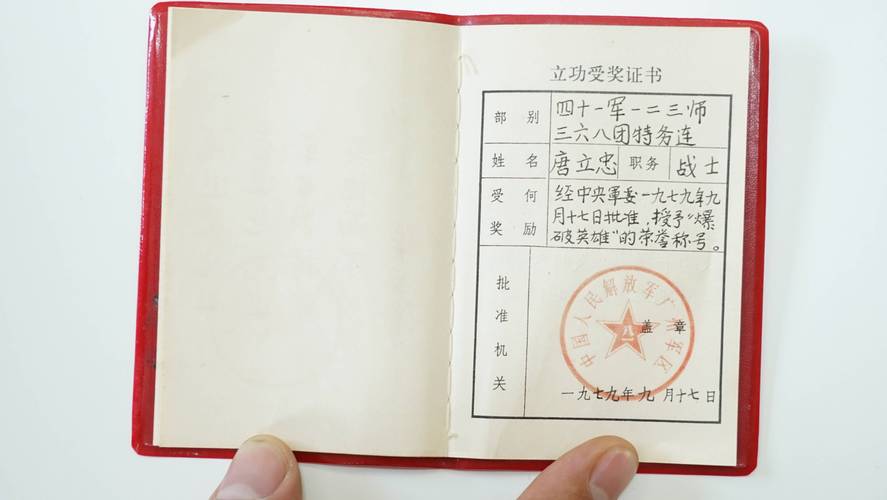 立功受奖证书
部别
四十一军一二三师
三六八团特务连
姓名
唐立忠
职务
战士
受何
奖励
经中央军委一九七九年九
月十七日批准,授予“爆
破英雄”的荣誉称号。
批准机关
中国人民解放军广州军区
八一
盖章
一九七九年九月十七日